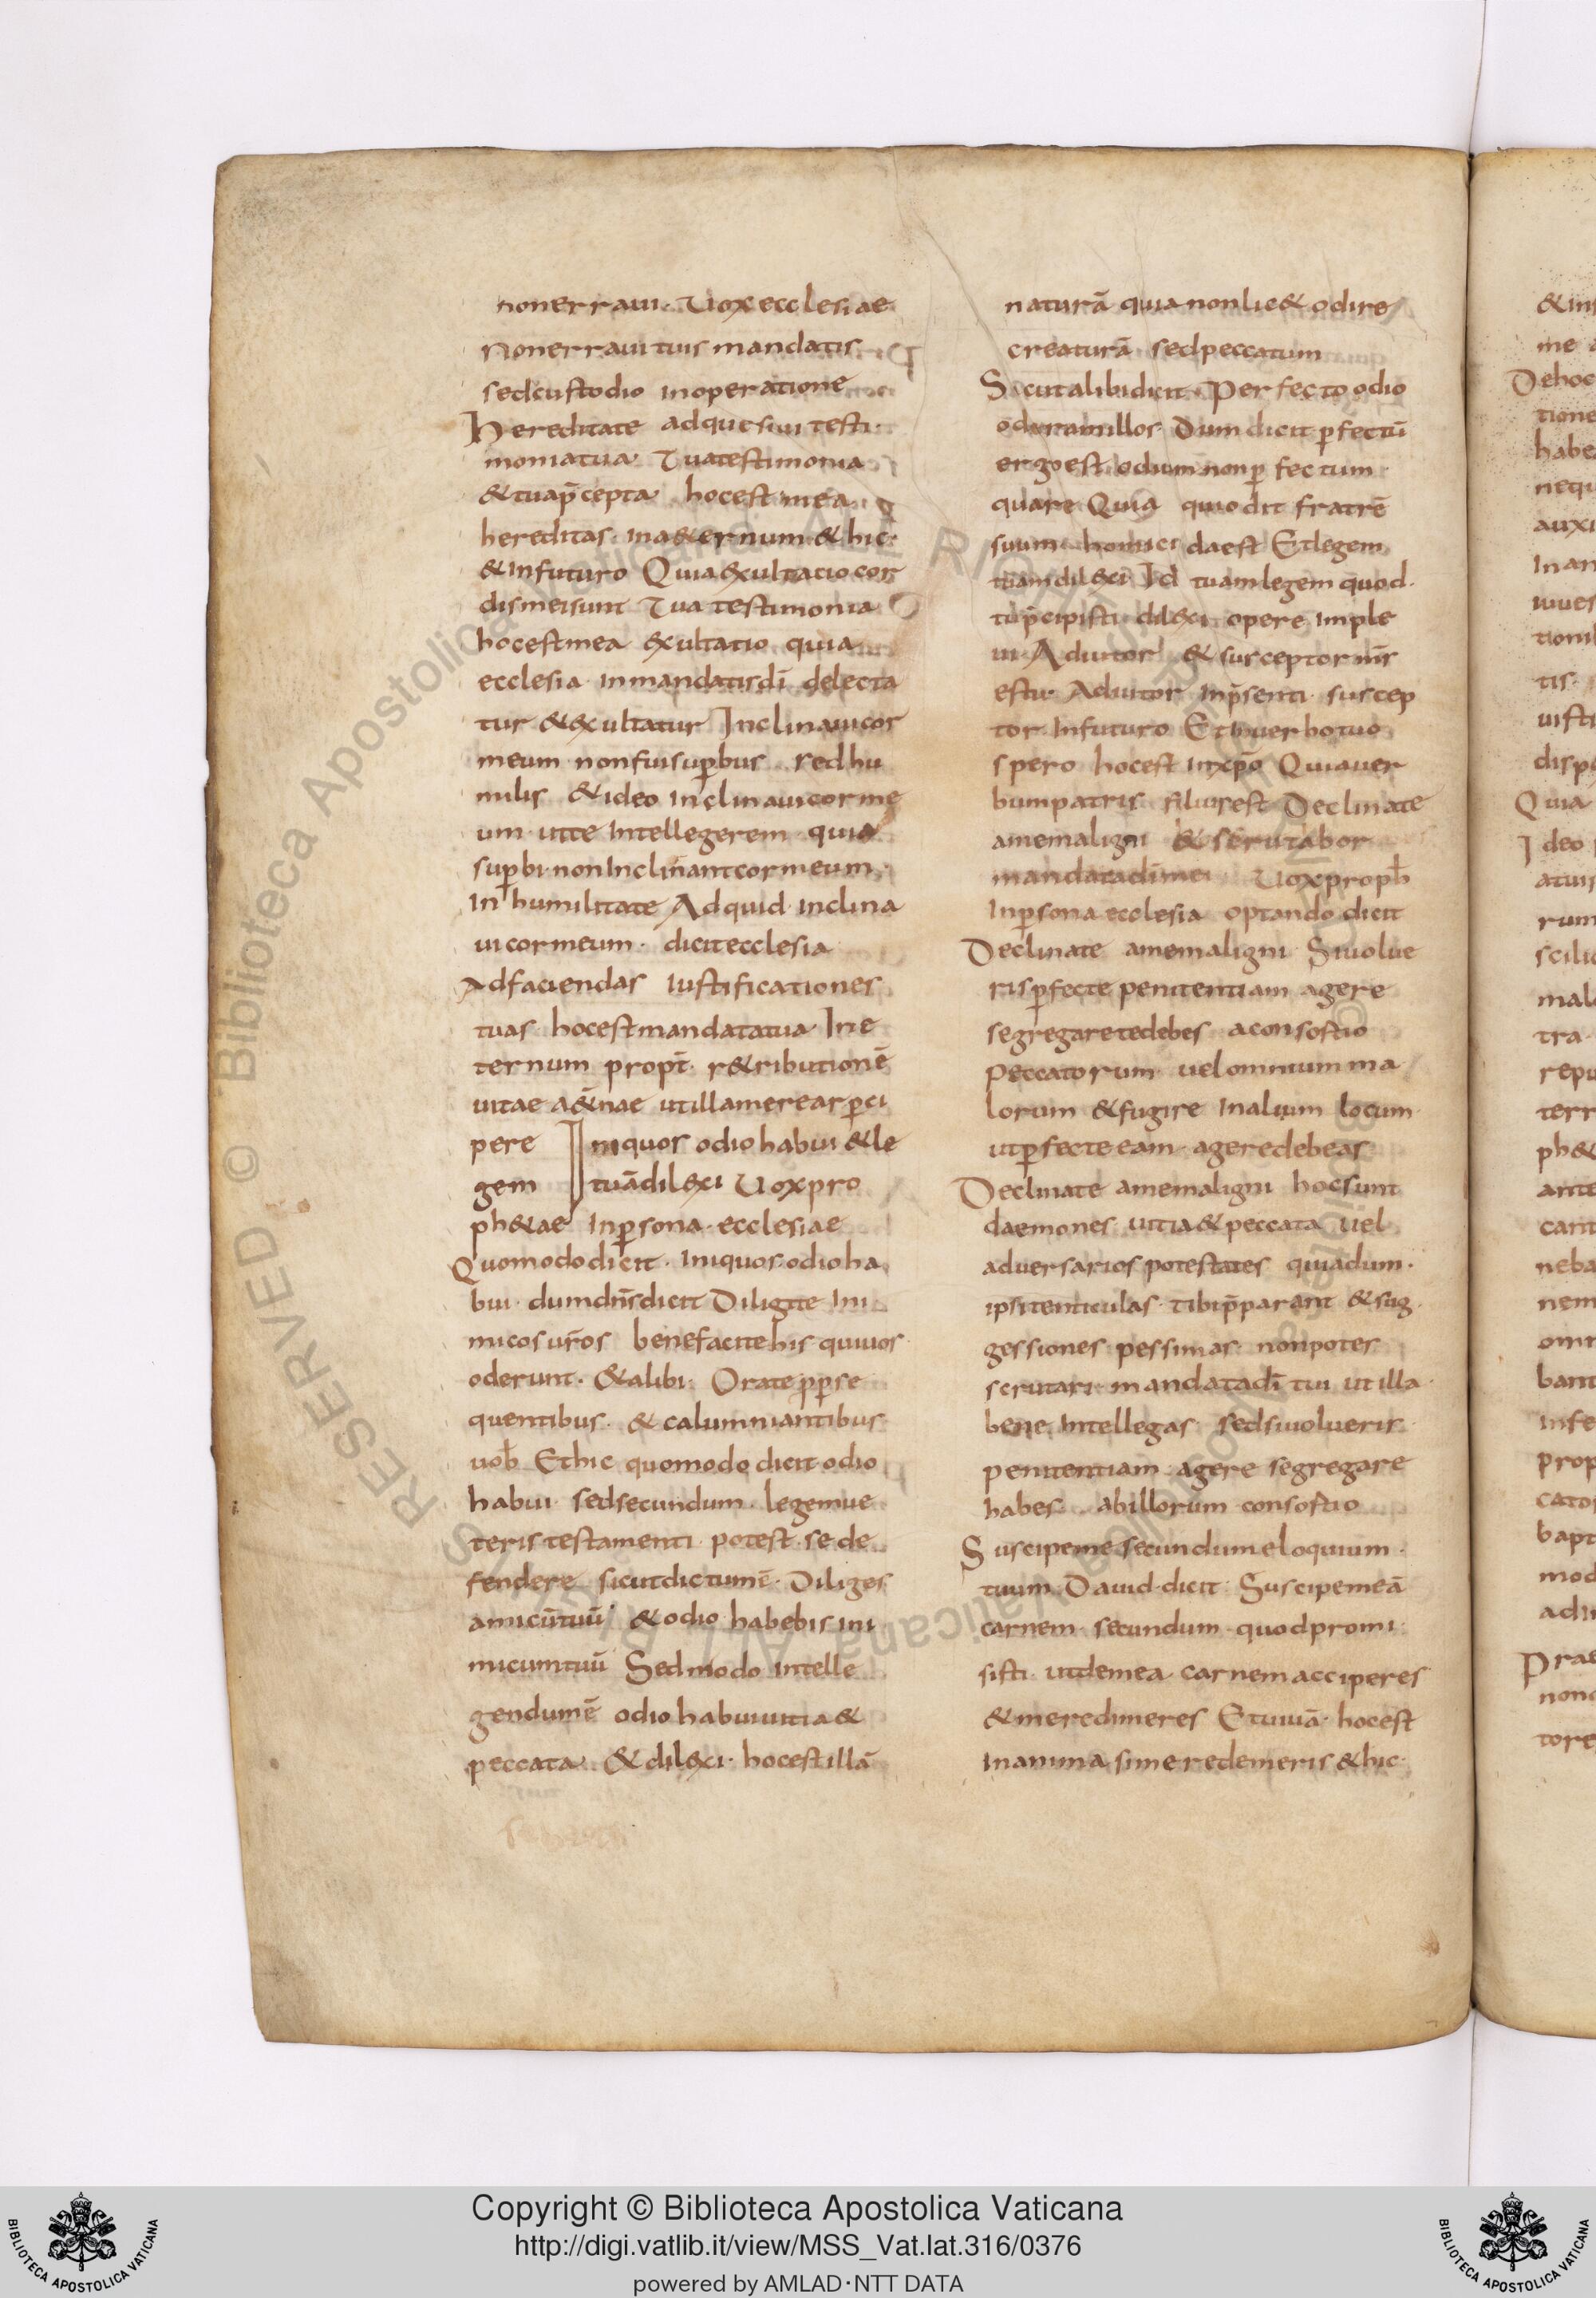 non erraui. Uox ecclesiae
Non erraui tuis mandatis
sed custodio in operatione
Hereditate adquesiui testi
monia tua Tua testimonia
& tua p̄cepta hoc est mea
hereditas. in a&ernum & hic
& in futuro Quia &xultatio cor
dis mei sunt Tua testimonia
hoc est mea &xultatio quia
ecclesia in mandatis dī delecta
tur & &xultatur Inclinaui cor
meum non fui sup̄bus sed hu
milis & ideo inclinaui cor me
um. ut te intellegerem quia
sup̄bi non inclinant cor meum
In humilitate Ad quid inclina
ui cor meum. dicit ecclesia
Ad faciendas iustificationes
tuas hoc est mandata tua In e
ternum propt̄ r&ributionē
uitae a&̄nae ut illa merear p̄ci
pere Iniquos odio habui & le
gem tuā dil&xi Uox pro
ph&ae in p̄sona ecclesiae
Quomodo dicit. iniquos odio ha
bui. dum dn̄s dicit Diligite ini
micos ur̄os benefacite his qui uos
oderunt. & alibi. Orate p̄ p̄se
quentibus. & calumniantibus
uob̄ Et hic quomodo dicit odio
habui sed secundum legem ue
teris testamenti potest se de
fendere sicut dictum ē. Diliges
amicū tuū & odio habebis ini
micum tuū Sed modo intelle
gendum ē odio habui uitia &
peccata & dil&xi. hoc est illā
naturā quia non lic& odire
creaturā sed peccatum
Sicut alibi dicit Perfecto odio
oderam illos Dum dicit p̄fectū
ergo est odium non p̄fectum
quare Quia qui odit fratrē
suum homicida est Et legem
tuam dil&xi Id tuam legem quod
tu p̄cipisti dil&xi opere imple
ui Adiutor & susceptor mr̄
es tu Adiutor in p̄senti suscep
tor in futuro Et in uerbo tuo
spero hoc est in xp̄o Quia uer
bum patris filius est Declinate
a me maligni & scrutabor
mandata dī mei Uox proph̄
in p̄sona ecclesia optando dicit
Declinate a me maligni Si uolue
ris p̄fecte penitentiam agere
segregare te debes a consoftio
peccatorum uel omnium ma
lorum & fugire in alium locum
ut p̄fecte eam. agere debeas
Declinate a me maligni hoc sunt
daemones uitia & peccata uel
aduersarios potestates quia dum
ipsi tenticulas tibi p̄parant & sug
gessiones pessimas non potes
scrutari mandata dī tui ut illa
bene intellegas sed si uolueris
penitentiam agere segregare
habes ab illorum consoftio
Suscipe me secundum eloquium
tuum Dauid dicit Suscipe meā
carnem secundum quod promi
sisti ut de mea carnem acciperes
& me redimeres Et uiuā hoc est
in anima si me redemeris & hic
Copyright © Biblioteca Apostolica Vaticana
http://digi.vatlib.it/view/MSS_Vat.lat.316/0376
powered by AMLAD·NTT DATA
BIBLIOTECA APOSTOLICA VATICANA
BIBLIOTECA APOSTOLICA VATICANA